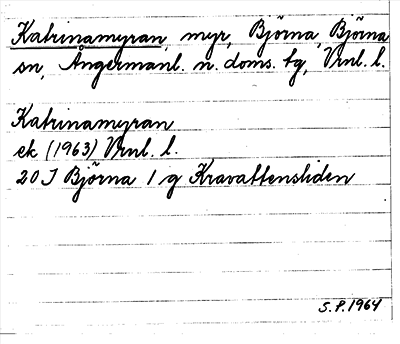 Katrinamyran, myr, Björna, Björna
sn, Ångermanl. n. doms. tg, Vrnl. l.
Katrinamyran
ek (1963) Vrnl. l.
20 I Björna 1 g Kravattensliden
S.P. 1964